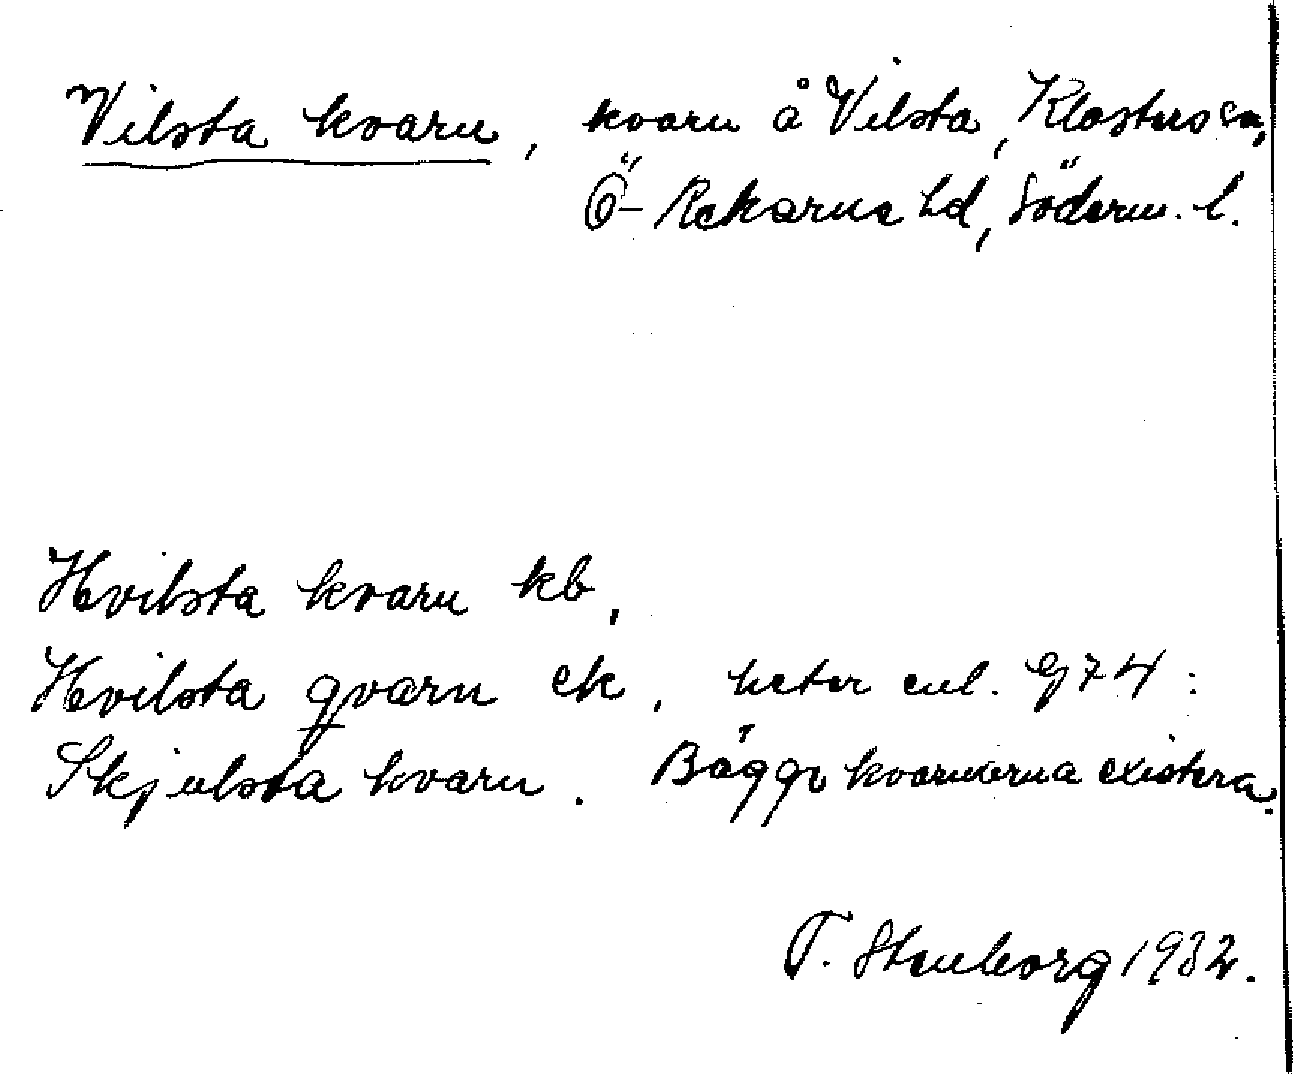 Vilsta kvarn, kvarn å Vilsta, Klosters sn,
Ö-Rekarne hd, Söderm. l.
Hvilsta kvarn kb,
Hvilsta qvarn ek, heter enl. Gj74:
Skjulsta kvarn. Bägge kvarnarna existera.
T. Stenborg 1932.